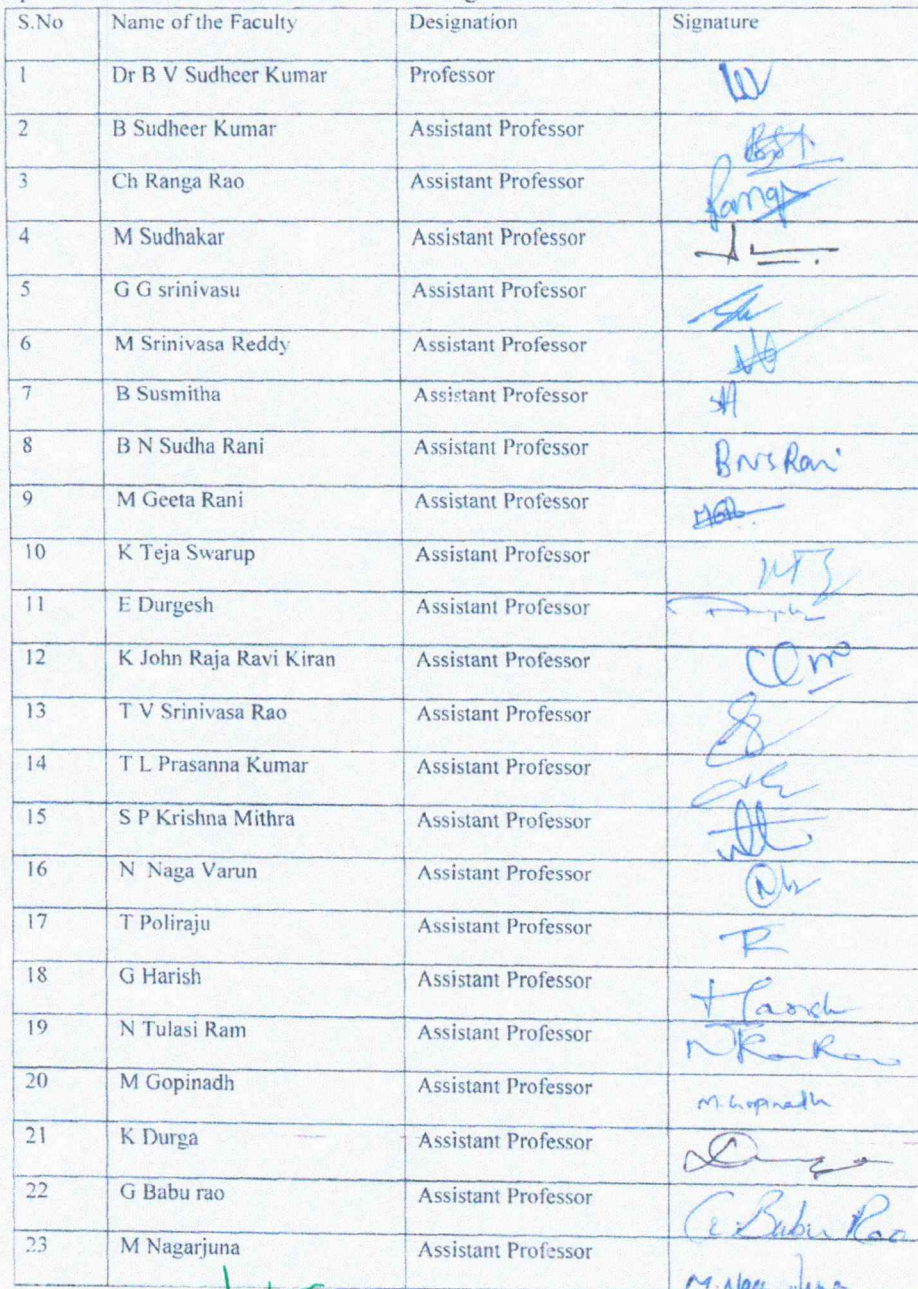 S.No Name of the Faculty Designation Signature
1 Dr B V Sudheer Kumar Professor
2 B Sudheer Kumar Assistant Professor
3 Ch Ranga Rao Assistant Professor
4 M Sudhakar Assistant Professor
5 G G srinivasu Assistant Professor
6 M Srinivasa Reddy Assistant Professor
7 B Susmitha Assistant Professor
8 B N Sudha Rani Assistant Professor BNS Rani
9 M Geeta Rani Assistant Professor
10 K Teja Swarup Assistant Professor
11 E Durgesh Assistant Professor
12 K John Raja Ravi Kiran Assistant Professor
13 T V Srinivasa Rao Assistant Professor
14 T L Prasanna Kumar Assistant Professor
15 S P Krishna Mithra Assistant Professor
16 N Naga Varun Assistant Professor
17 T Poliraju Assistant Professor
18 G Harish Assistant Professor Harish
19 N Tulasi Ram Assistant Professor
20 M Gopinadh Assistant Professor M. Gopinadh
21 K Durga Assistant Professor
22 G Babu rao Assistant Professor G. Babu Rao
23 M Nagarjuna Assistant Professor